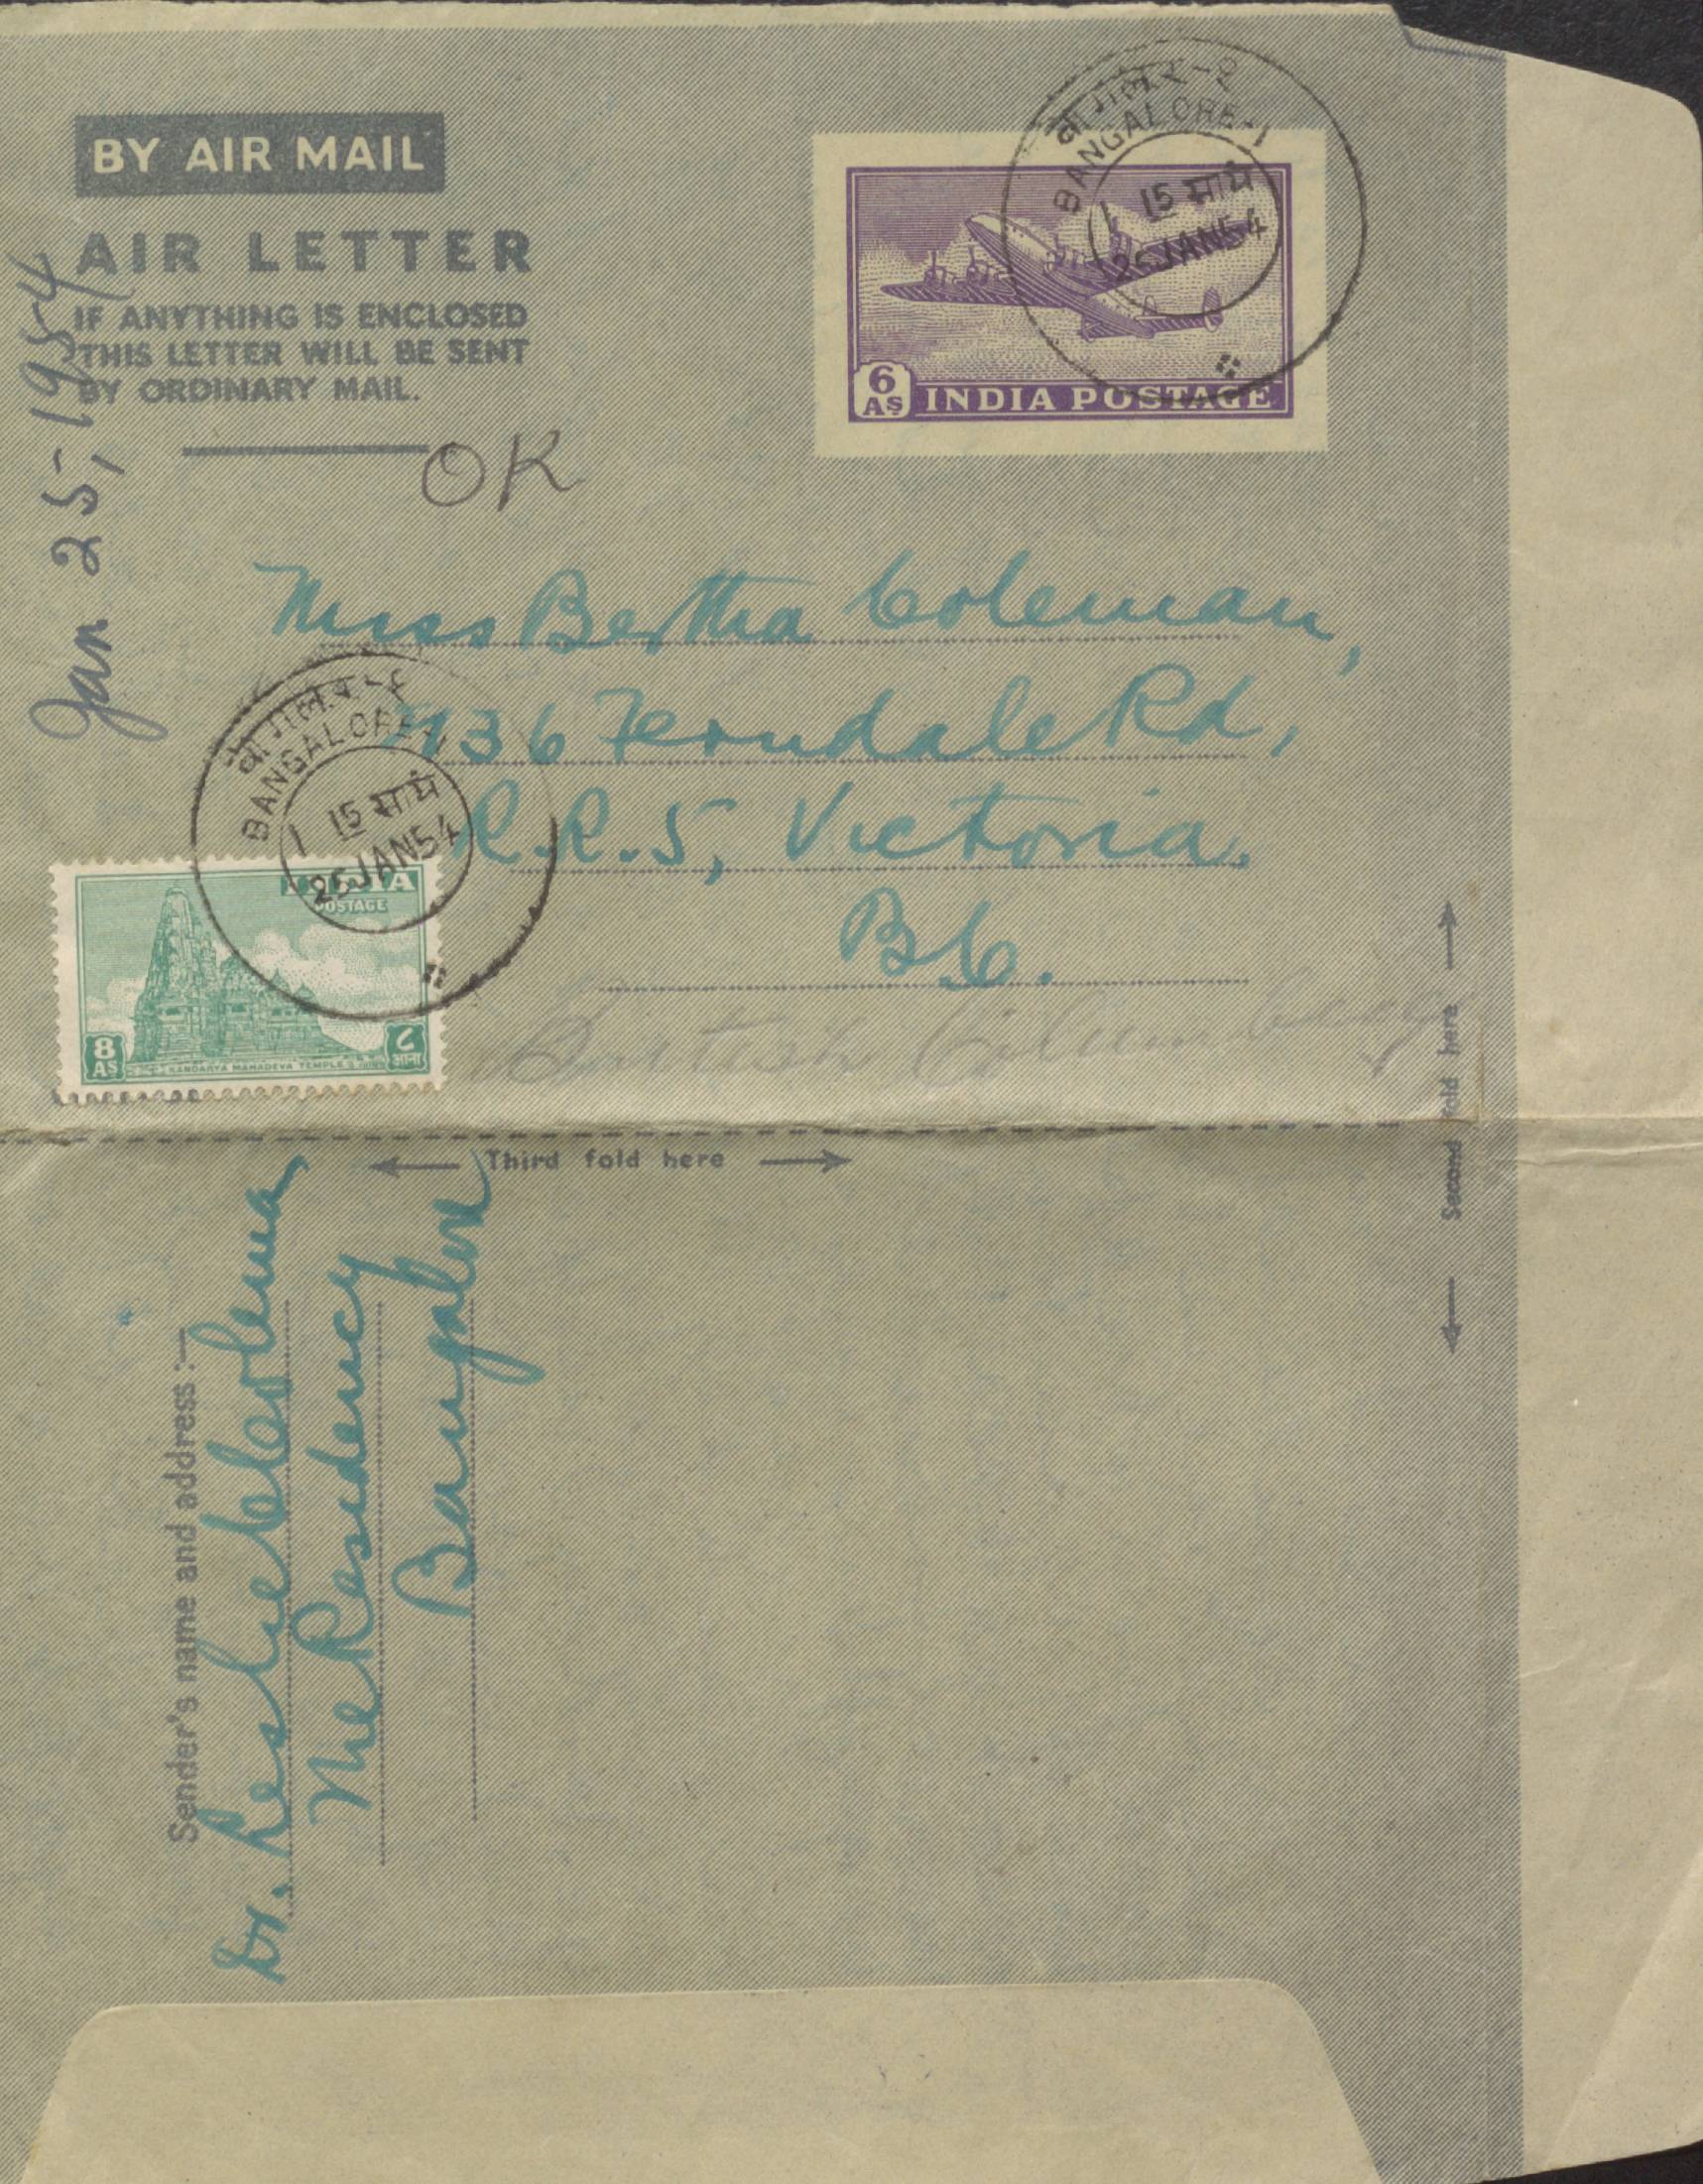 BY AIR MAIL
AIR LETTER
IF ANYTHING IS ENCLOSED
THIS LETTER WILL BE SENT
BY ORDINARY MAIL.
Jan 25, 1954
OK
BANGALORE-1
1 15 सायं
25 JAN 54
6 AS INDIA POSTAGE
Miss Bertha Coleman,
936 Ferndale Rd,
R.R.5, Victoria.
B.C.
British Columbia
BANGALORE-1
1 15 सायं
25 JAN 54
INDIA
POSTAGE
8 AS
८ आना
KANDARYA MAHADEVA TEMPLE
Third fold here
Second fold here
Sender's name and address:—
Dr. Leslie Coleman
The Residency
Bangalore